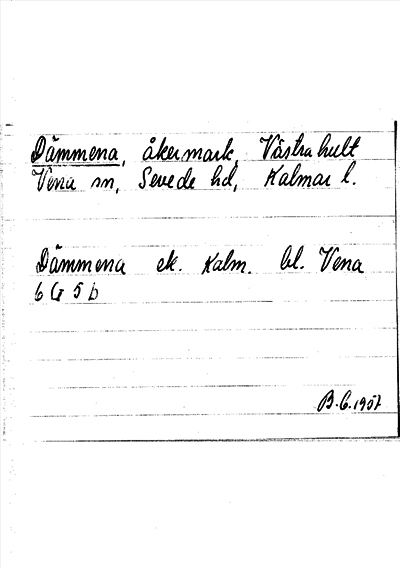 Dämmena, åkermark, Västra hult
Vena sn, Sevede hd, Kalmar l.
Dämmena ek. Kalm. bl. Vena
6 G 5 b
B.G. 1957